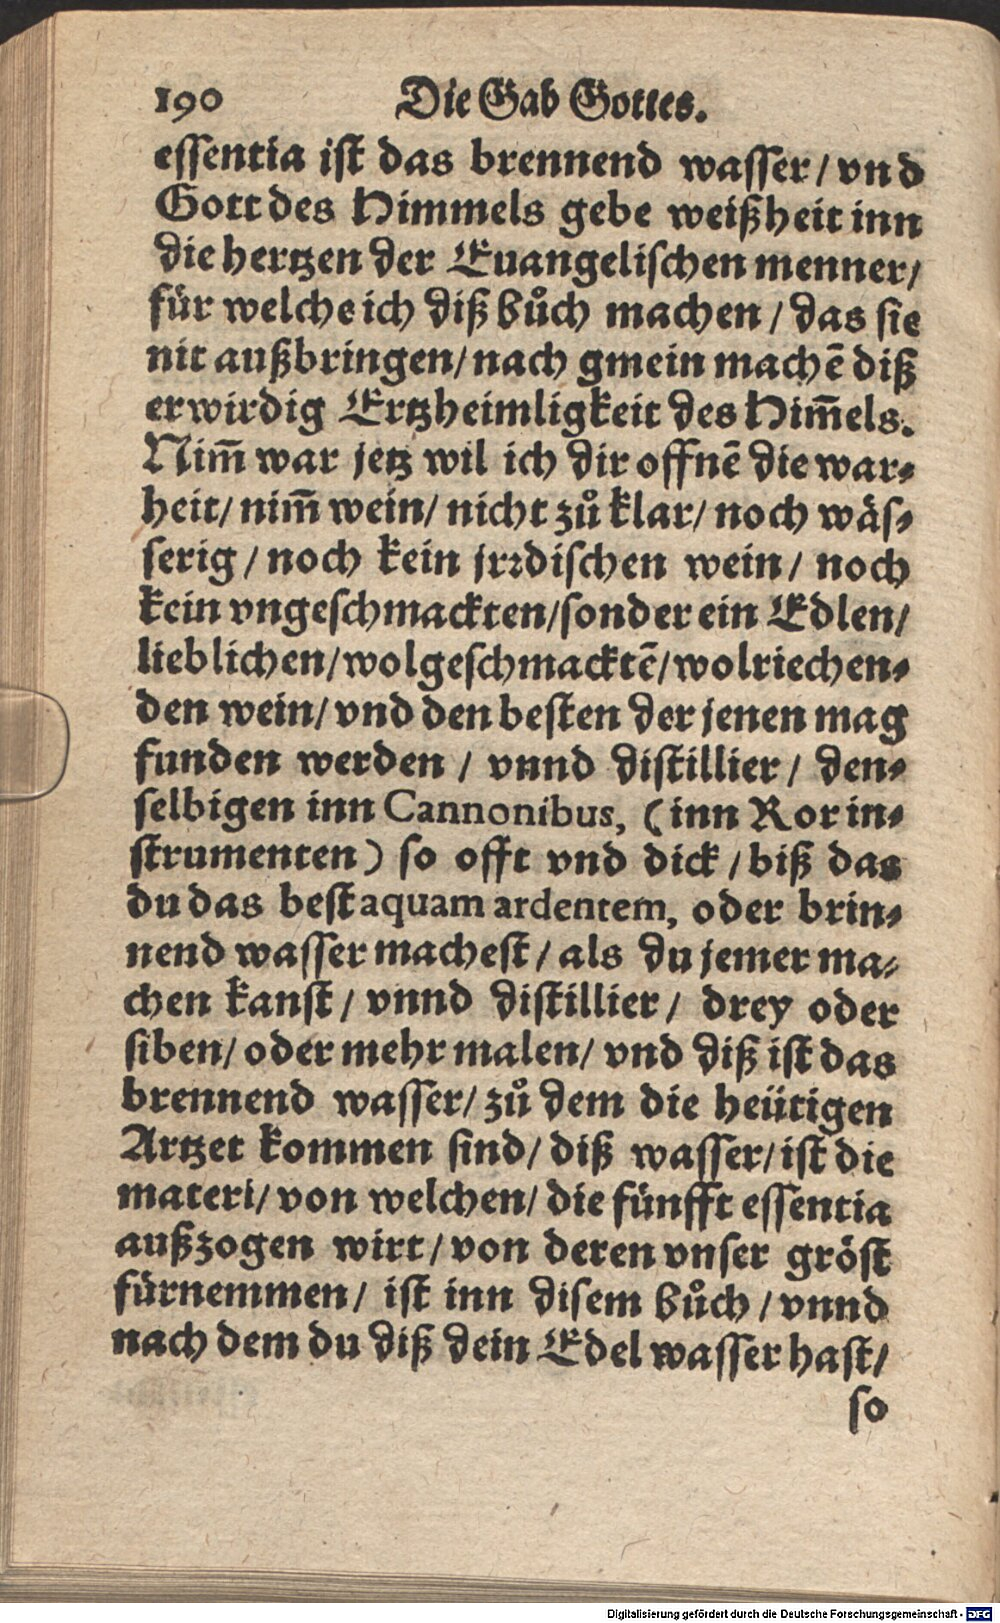 190 Die Gab Gottes.
essentia ist das brennend wasser / vnd
Gott des Himmels gebe weißheit inn
die hertzen der Euangelischen menner /
für welche ich diß bůch machen / das sie
nit außbringen / nach gmein machē diß
erwirdig Ertzheimligkeit des Him̄els.
Nim̄ war jetz wil ich dir offnē die war⸗
heit / nim̄ wein / nicht zů klar / noch wäs⸗
serig / noch kein jrꝛdischen wein / noch
kein vngeschmackten / sonder ein Edlen /
lieblichen / wolgeschmacktē / wolriechen⸗
den wein / vnd den besten der jenen mag
funden werden / vnnd distillier / den⸗
selbigen inn Cannonibus, (inn Ror in⸗
strumenten) so offt vnd dick / biß das
du das best aquam ardentem, oder brin⸗
nend wasser machest / als du jemer ma⸗
chen kanst / vnnd distillier / drey oder
siben / oder mehr malen / vnd diß ist das
brennend wasser / zů dem die heütigen
Artzet kommen sind / diß wasser / ist die
materi / von welchen / die fünfft essentia
außzogen wirt / von deren vnser gröst
fürnemmen / ist inn disem bůch / vnnd
nach dem du diß dein Edel wasser hast /
so
Digitalisierung gefördert durch die Deutsche Forschungsgemeinschaft - DFG